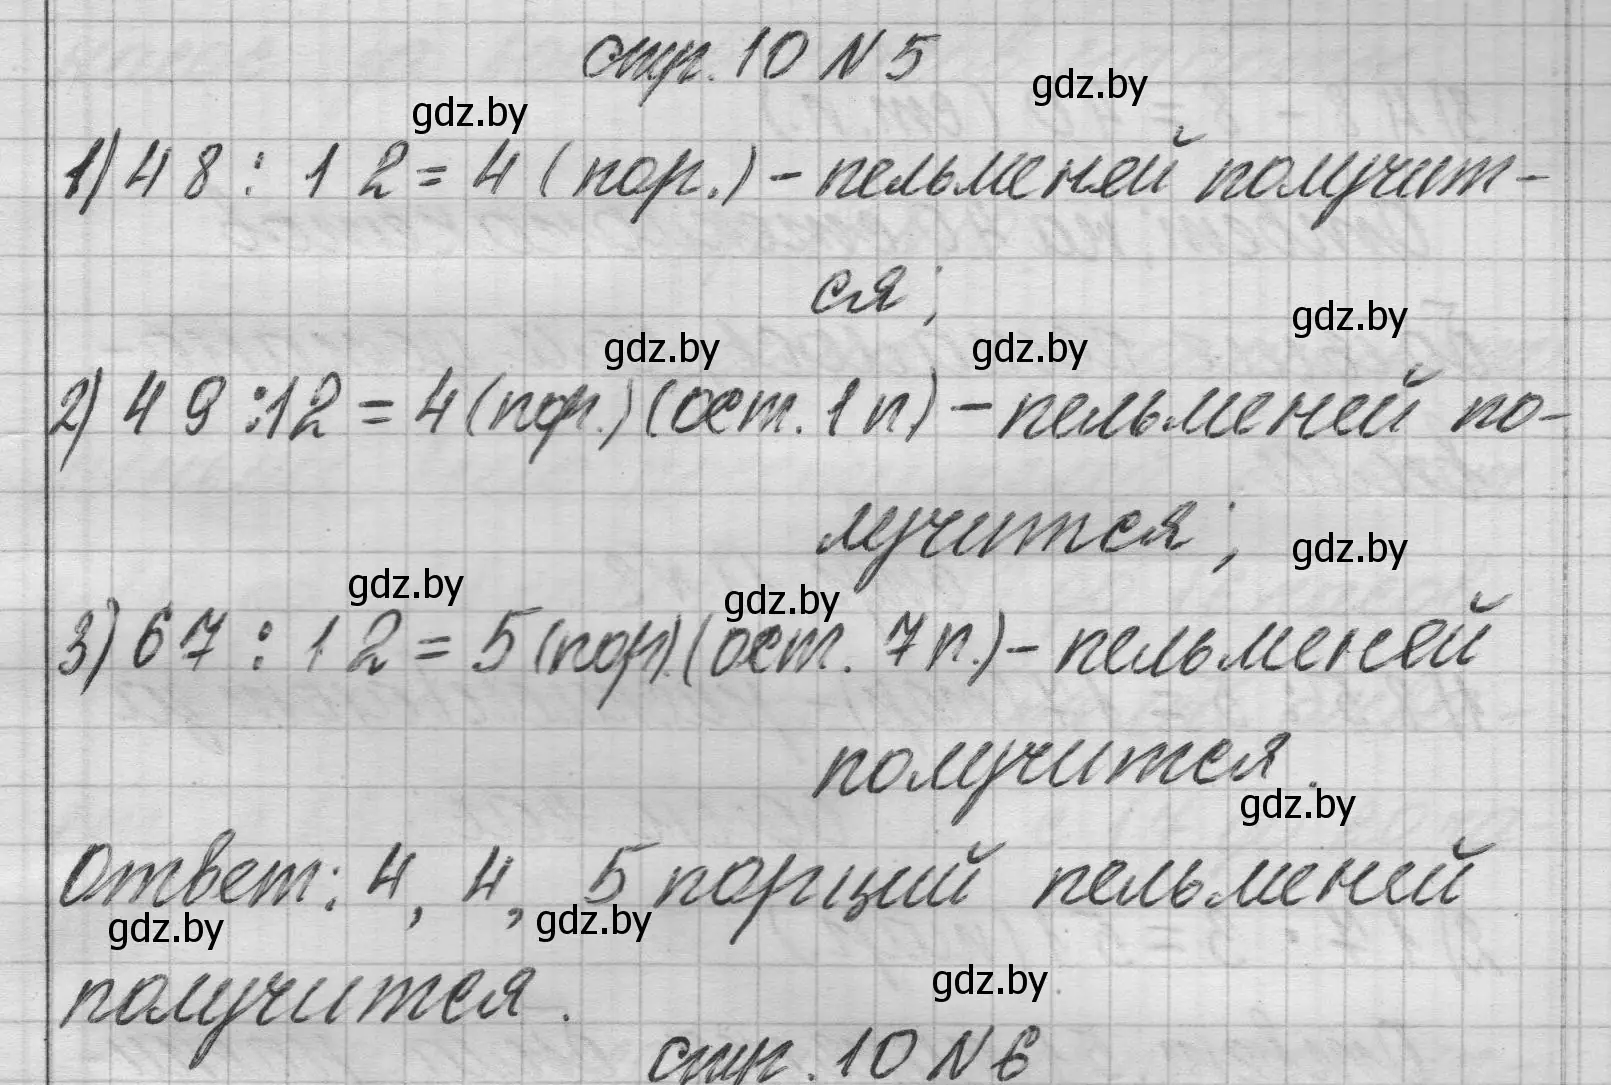 стр. 10 N 5
gdz.by
gdz.by
1) 48 : 12 = 4 (пор.) - пельменей получит-
ся;
gdz.by
gdz.by
gdz.by
2) 49 :12 = 4 (пор.) (ост. 1 п) - пельменей по-
лучится;
gdz.by
gdz.by
gdz.by
3) 67 : 12 = 5 (пор). (ост. 7 п.) - пельменей
получится.
gdz.by
Ответ: 4, 4, 5 порций пельменей
gdz.by
gdz.by
получится.
gdz.by
стр. 10 N 6